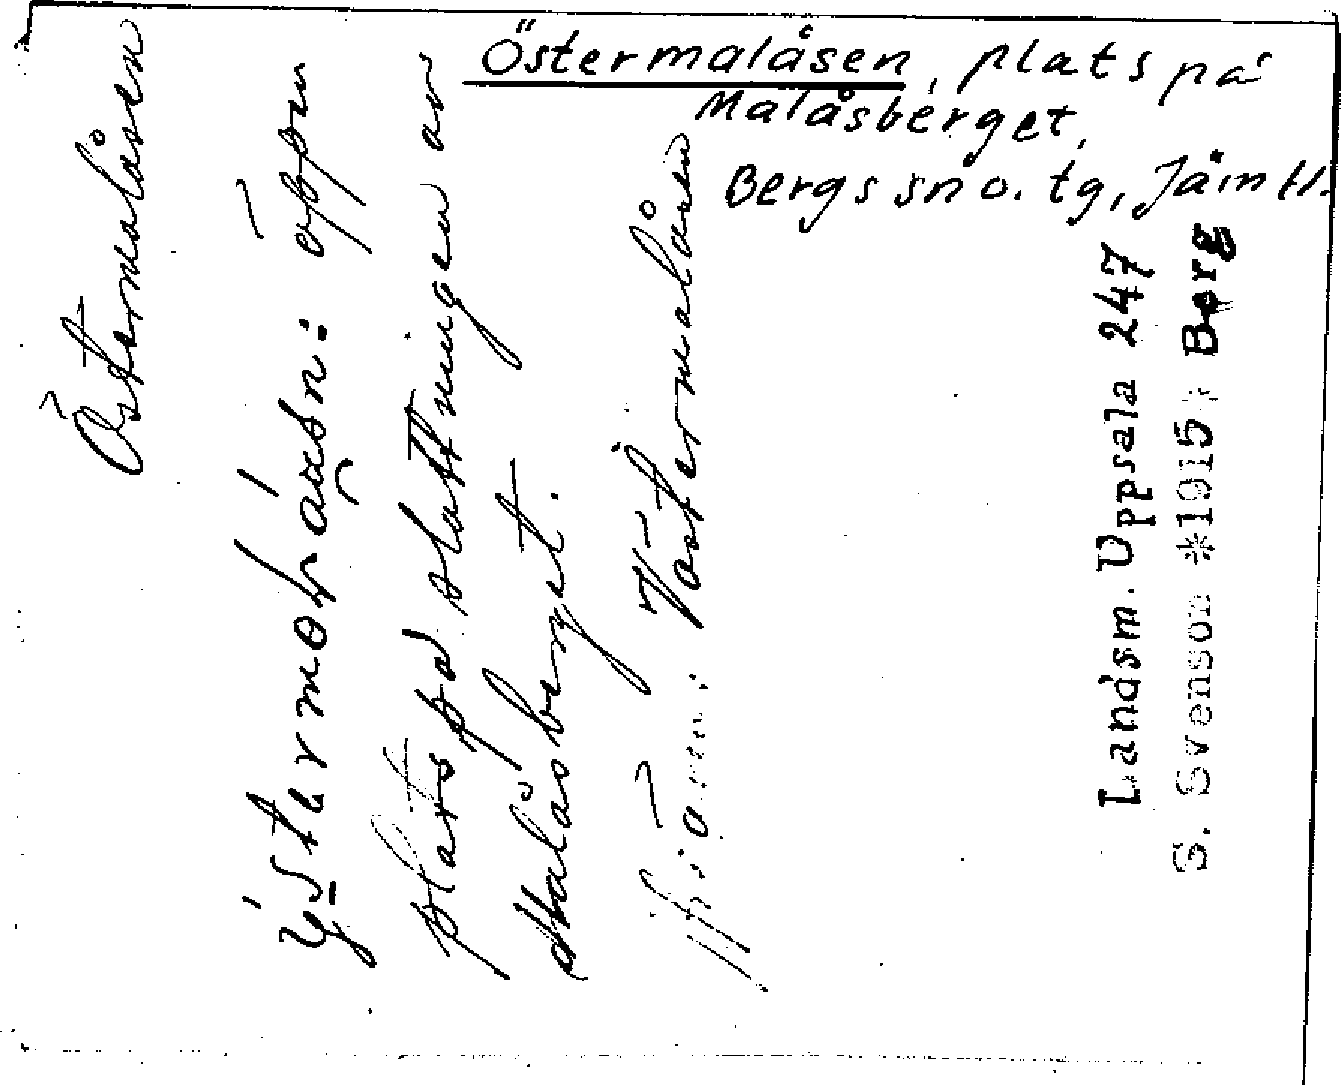 Östermalåsen, plats på
Malåsberget,
Bergs sn o. tg, Jämtl.
Östermalåsen
öppen
plats på slättningen av
Malåsberget.
Jfr Västermalåsen
Landsm. Uppsala 247
S. Svenson *1915: Berg